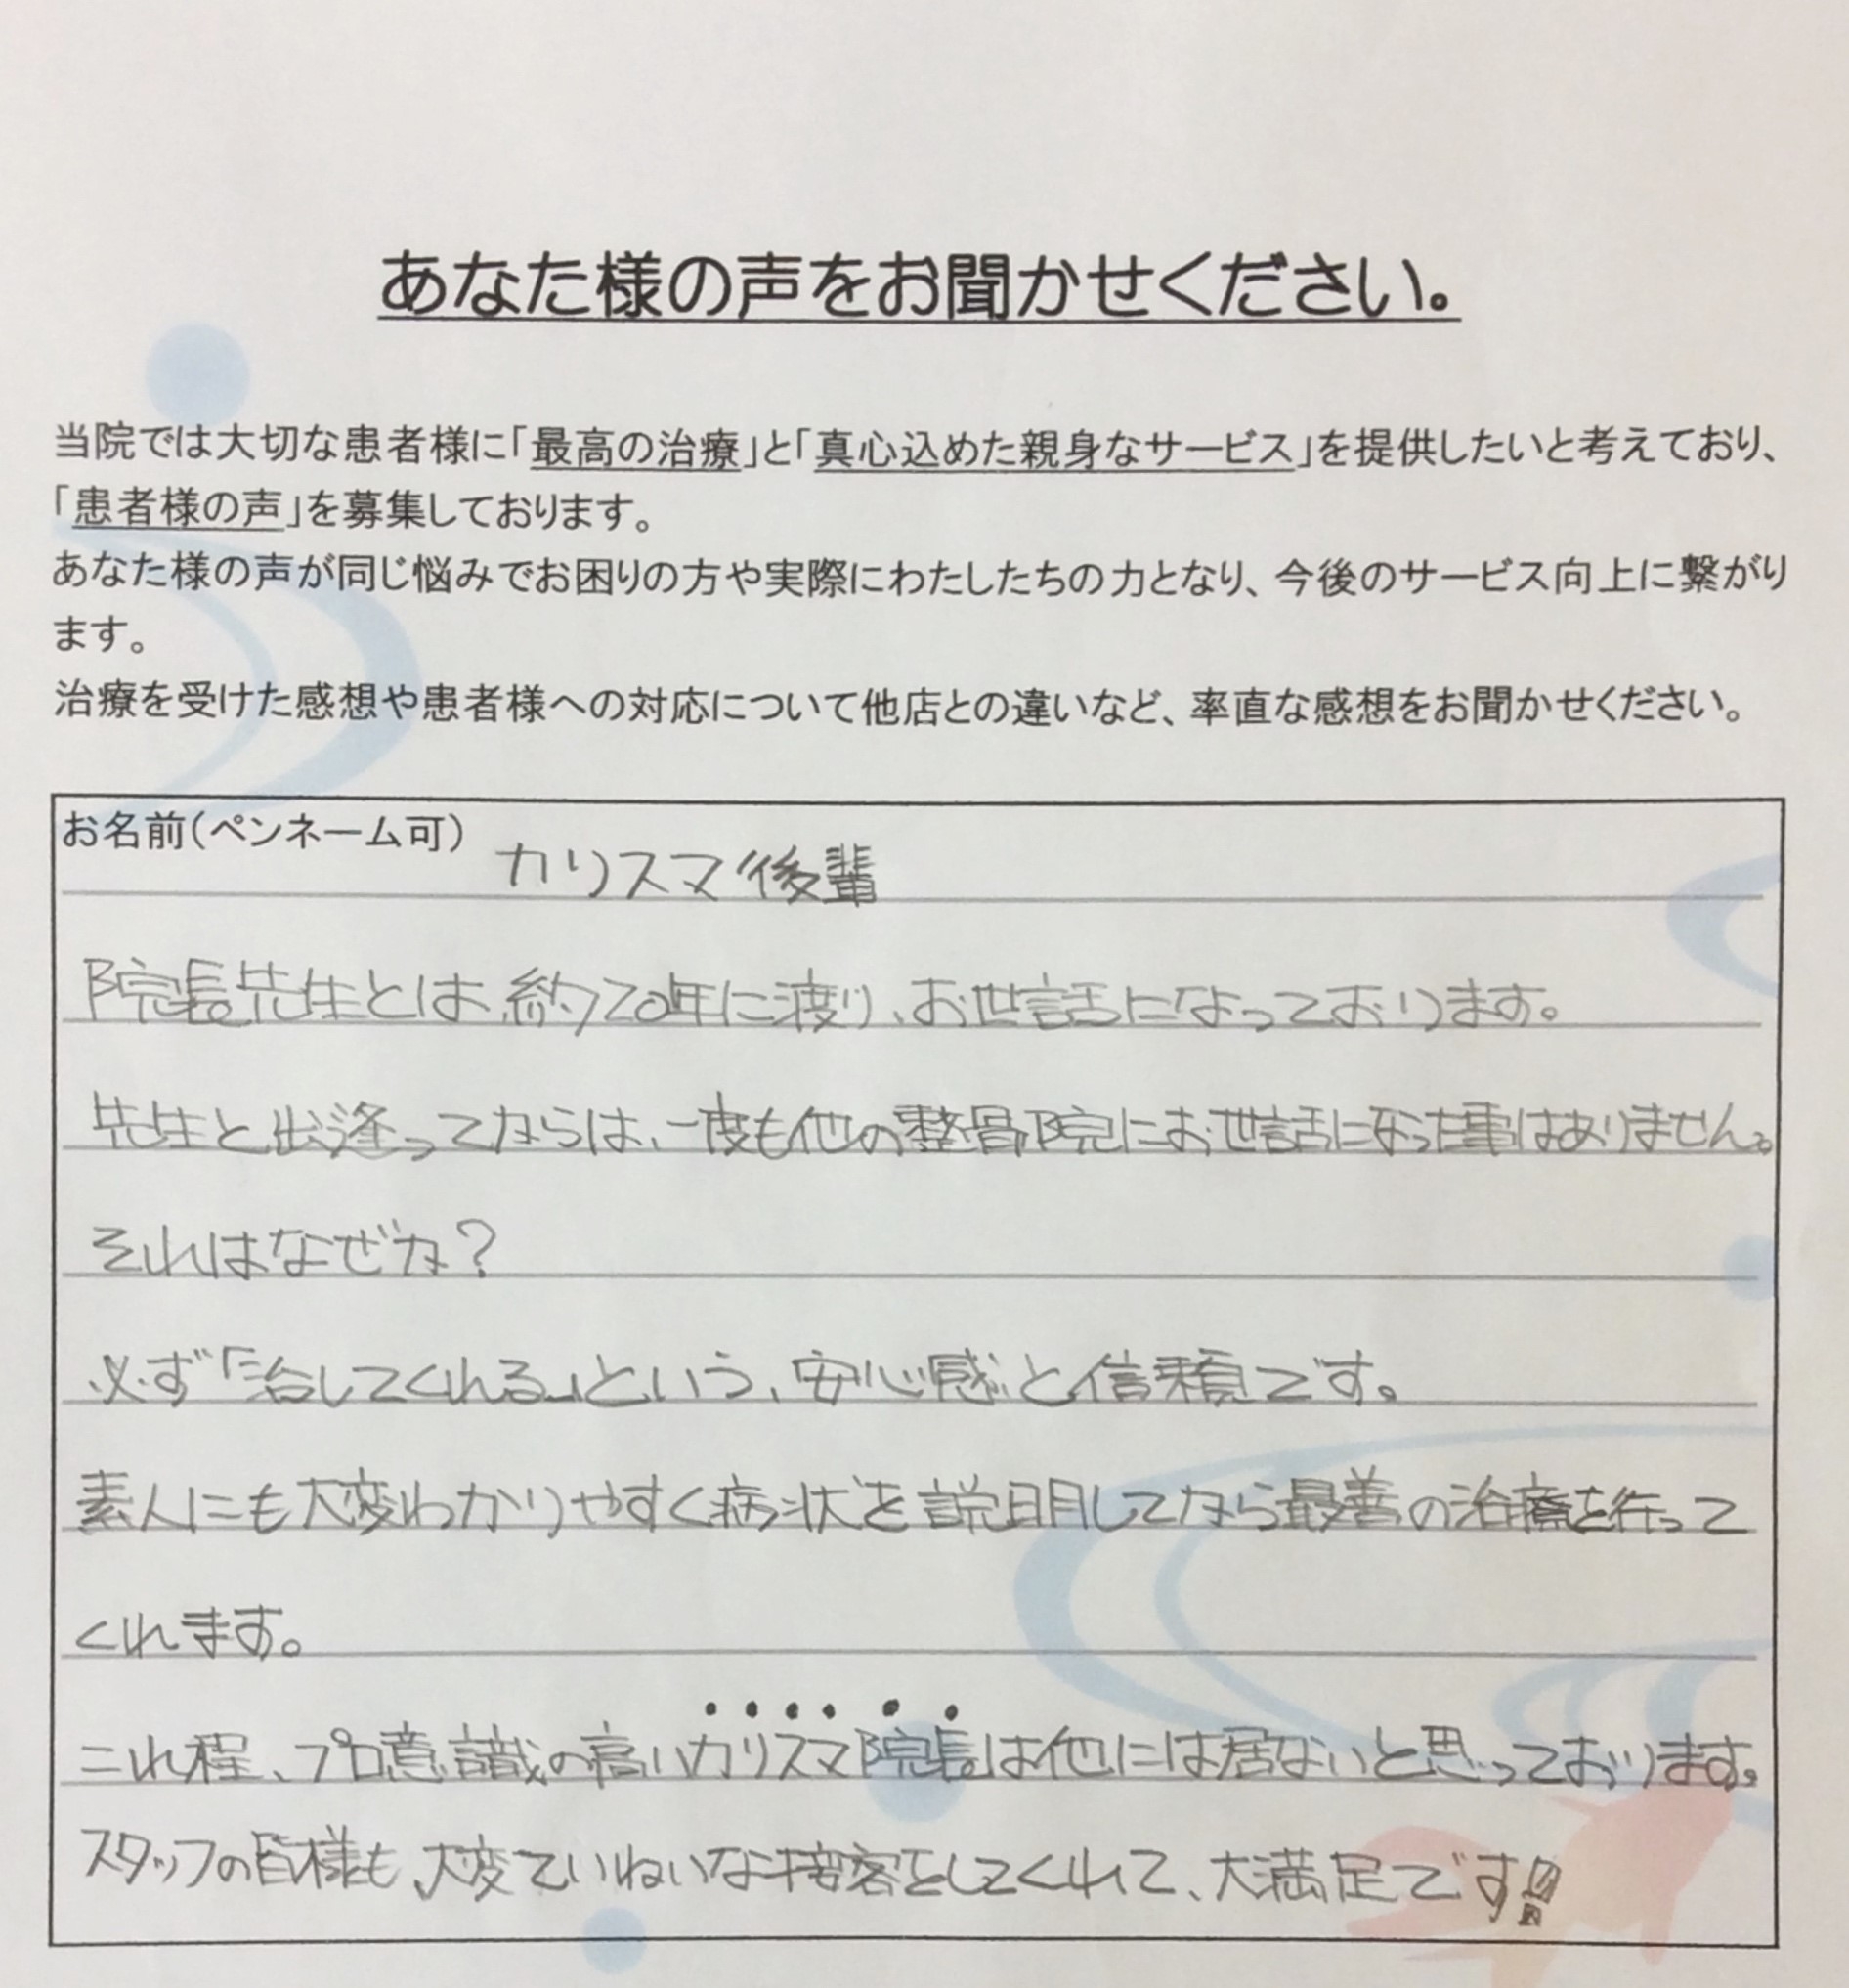 あなた様の声をお聞かせください。
当院では大切な患者様に「最高の治療」と「真心込めた親身なサービス」を提供したいと考えており、
「患者様の声」を募集しております。
あなた様の声が同じ悩みでお困りの方や実際にわたしたちの力となり、今後のサービス向上に繋がり
ます。
治療を受けた感想や患者様への対応について他店との違いなど、率直な感想をお聞かせください。
お名前(ペンネーム可) カリスマ後輩
院長先生とは、約20年に渡り、お世話になっております。
先生と出逢ってからは、一度も他の整骨院にお世話になった事はありません。
それはなぜか?
必ず「治してくれる」という、安心感と信頼です。
素人にも大変わかりやすく病状を説明してから最善の治療を行って
くれます。
これ程、プロ意識の高いカリスマ院長は他には居ないと思っております。
スタッフの皆様も、大変ていねいな接客をしてくれて、大満足です!!